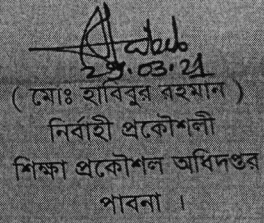 ২৯.০৩.২১
( মোঃ হাবিবুর রহমান )
নির্বাহী প্রকৌশলী
শিক্ষা প্রকৌশল অধিদপ্তর
পাবনা ।